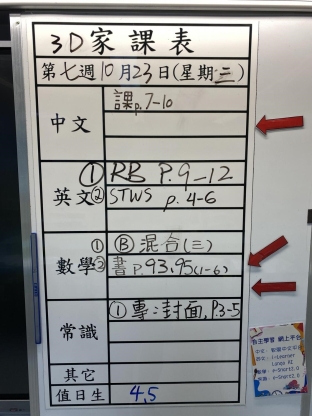 3D家課表
第七週10月23日(星期三)
中文
課p.7-10
英文
① RB P.9-12
② STWS p.4-6
數學
① Ⓑ 混合(三)
② 書p.93,95(1-6)
常識
① 專:封面,P.3-5
其它
值日生 4,5
自主學習 網上平台